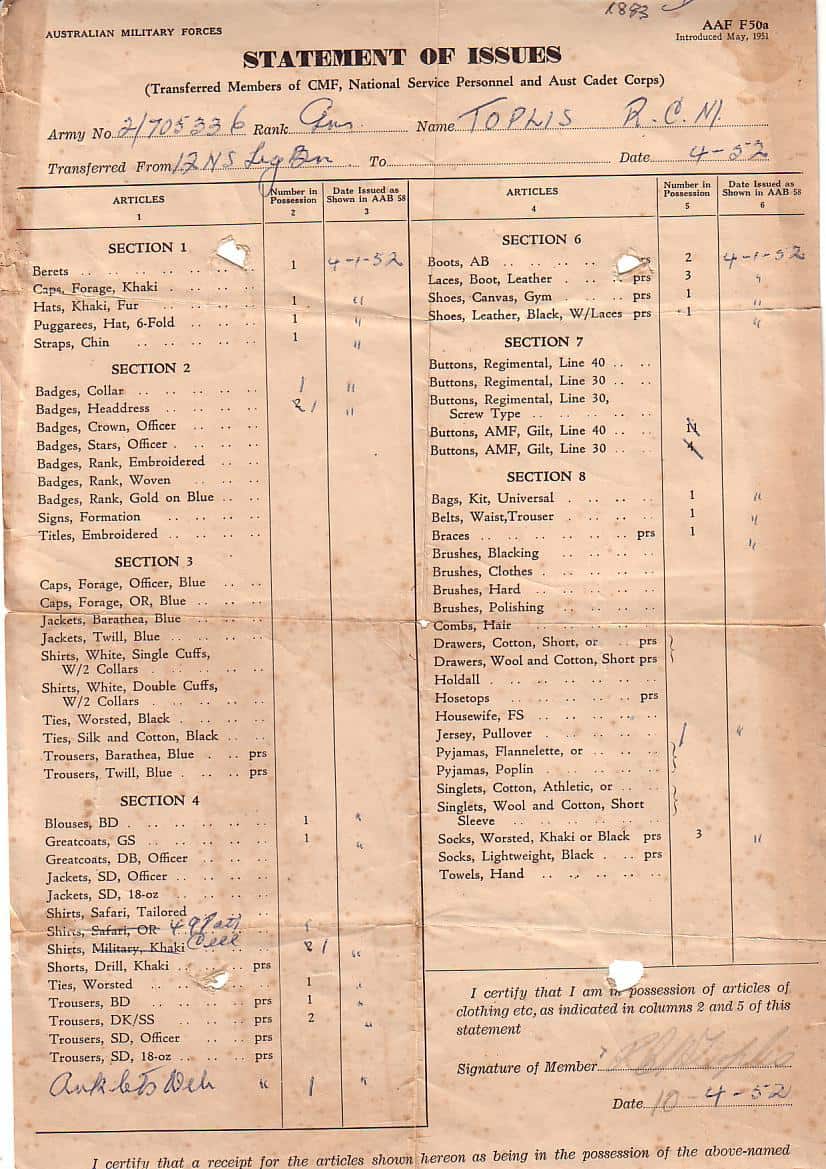 1893
AUSTRALIAN MILITARY FORCES
AAF F50a
Introduced May, 1951
STATEMENT OF ISSUES
(Transferred Members of CMF, National Service Personnel and Aust Cadet Corps)
Army No. 2/705336 Rank Gnr Name TOPLIS R.C.M.
Transferred From 12 NS Trg Bn To Date 4-52
ARTICLES Number in Possession Date Issued as Shown in AAB 58
1 2 3
SECTION 1
Berets 1 4-1-52
Caps, Forage, Khaki
Hats, Khaki, Fur 1 "
Puggarees, Hat, 6-Fold 1 "
Straps, Chin 1 "
SECTION 2
Badges, Collar 1 "
Badges, Headdress 2 1 "
Badges, Crown, Officer
Badges, Stars, Officer
Badges, Rank, Embroidered
Badges, Rank, Woven
Badges, Rank, Gold on Blue
Signs, Formation
Titles, Embroidered
SECTION 3
Caps, Forage, Officer, Blue
Caps, Forage, OR, Blue
Jackets, Barathea, Blue
Jackets, Twill, Blue
Shirts, White, Single Cuffs,
W/2 Collars
Shirts, White, Double Cuffs,
W/2 Collars
Ties, Worsted, Black
Ties, Silk and Cotton, Black
Trousers, Barathea, Blue prs
Trousers, Twill, Blue prs
SECTION 4
Blouses, BD 1 "
Greatcoats, GS 1 "
Greatcoats, DB, Officer
Jackets, SD, Officer
Jackets, SD, 18-oz
Shirts, Safari, Tailored
Shirts, Safari, OR 49 Patt
Shirts, Military, Khaki 2 1 "
Shorts, Drill, Khaki prs
Ties, Worsted 1 "
Trousers, BD prs 1 "
Trousers, DK/SS prs 2 "
Trousers, SD, Officer prs
Trousers, SD, 18-oz prs
Anklets Web " 1 "
ARTICLES Number in Possession Date Issued as Shown in AAB 58
4 5 6
SECTION 6
Boots, AB prs 2 4-1-52
Laces, Boot, Leather prs 3 "
Shoes, Canvas, Gym prs 1 "
Shoes, Leather, Black, W/Laces prs 1 "
SECTION 7
Buttons, Regimental, Line 40
Buttons, Regimental, Line 30
Buttons, Regimental, Line 30,
Screw Type
Buttons, AMF, Gilt, Line 40 11
Buttons, AMF, Gilt, Line 30 4
SECTION 8
Bags, Kit, Universal 1 "
Belts, Waist,Trouser 1 "
Braces prs 1 "
Brushes, Blacking
Brushes, Clothes
Brushes, Hard
Brushes, Polishing
Combs, Hair
Drawers, Cotton, Short, or prs
Drawers, Wool and Cotton, Short prs
Holdall
Hosetops prs
Housewife, FS
Jersey, Pullover 1 "
Pyjamas, Flannelette, or
Pyjamas, Poplin
Singlets, Cotton, Athletic, or
Singlets, Wool and Cotton, Short
Sleeve
Socks, Worsted, Khaki or Black prs 3 "
Socks, Lightweight, Black prs
Towels, Hand
I certify that I am in possession of articles of
clothing etc, as indicated in columns 2 and 5 of this
statement
Signature of Member
Date 10-4-52
I certify that a receipt for the articles shown hereon as being in the possession of the above-named